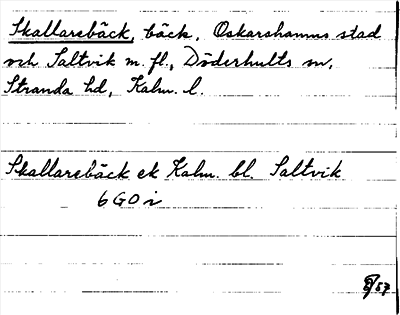 Skallarebäck, bäck, Oskarshamns stad
och Saltvik m. fl., Döderhults sn,
Stranda hd, Kalm. l.
Skallarebäck ek Kalm. bl. Saltvik
6 G O i